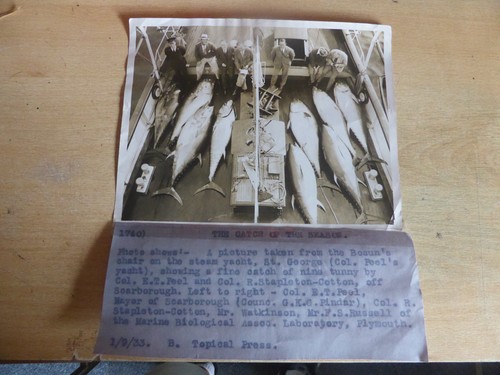 1740) THE CATCH OF THE SEASON.
Photo shows:- A picture taken from the Bosun's
chair on the steam yacht, St. George (Col. Peel's
yacht), showing a fine catch of nine tunny by
Col. E.T.Peel and Col. R.Stapleton-Cotton, off
Scarborough. Left to right - Col. E.T.Peel,
Mayor of Scarborough (Counc. G.K.G.Pindar), Col. R.
Stapleton-Cotton, Mr. Watkinson, Mr.F.S.Russell of
the Marine Biological Assoc. Laboratory, Plymouth.
1/9/33. B. Topical Press.